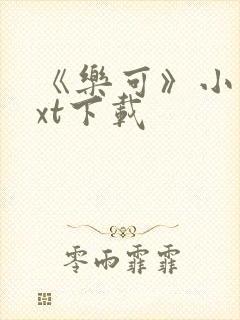 《樂可》小
xt下載
零雨霏霏